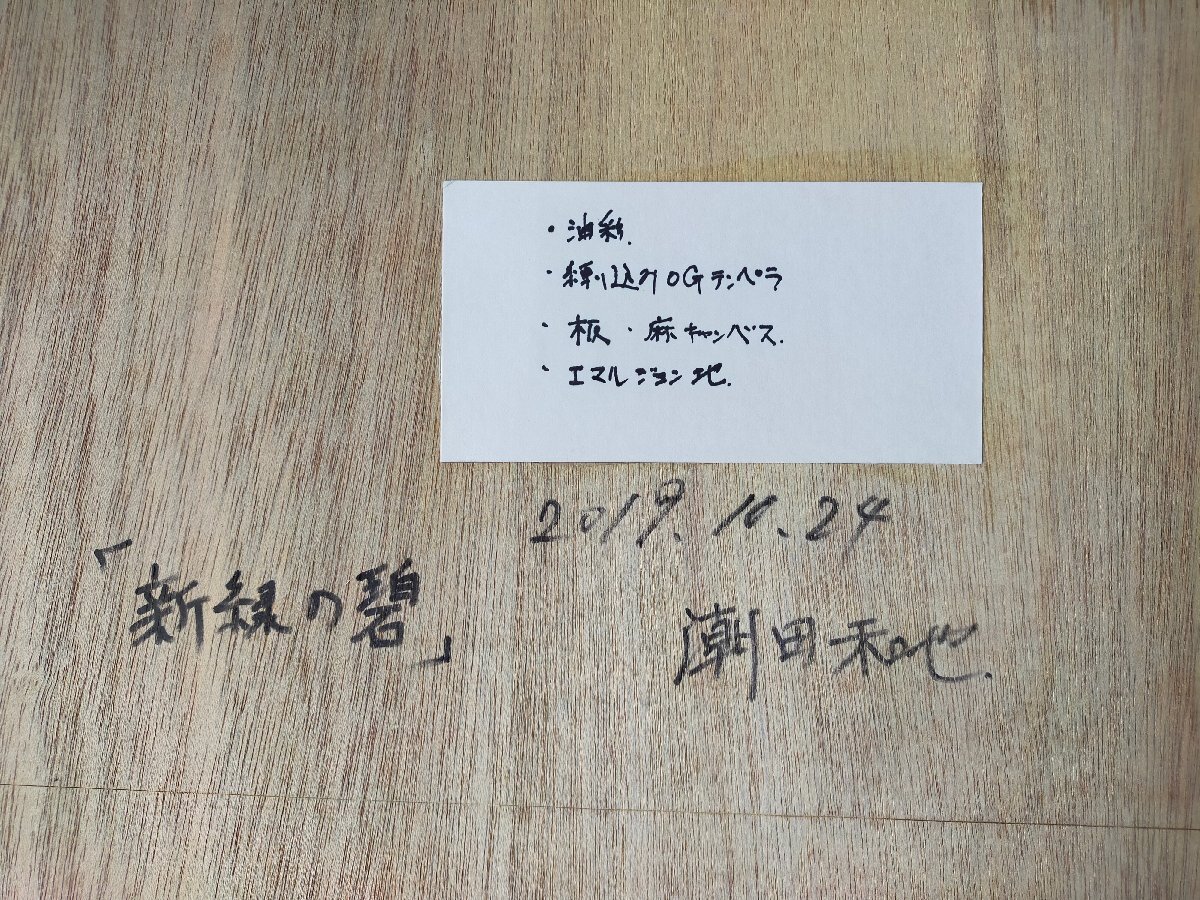 ・油彩.
・練り込みOGテンペラ
・板・麻キャンバス.
・エマルジョン地.
2019.10.24
「新緑の碧」
潮田和也.